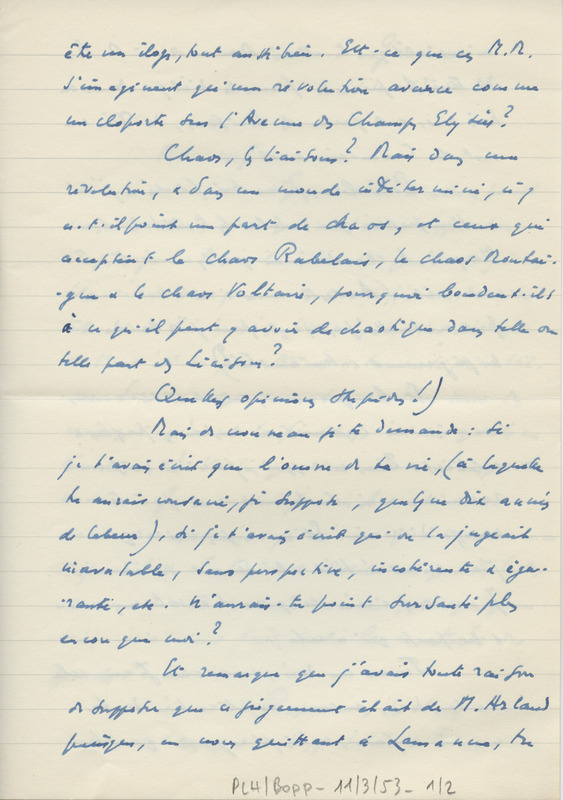 être un éloge, tout aussi bien. Est-ce que ces M.M.
s'imaginent qu'une révolution avance comme
un cloporte sur l'Avenue des Champs Elysées ?
Chaos, les Liaisons ? Mais dans une
révolution, & dans un monde indéterminé, n'y
a-t-il point une part de chaos, et ceux qui
acceptent le chaos Rabelais, le chaos Montai-
-gne & le chaos Voltaire, pourquoi boudent-ils
à ce qu'il peut y avoir de chaotique dans telle ou
telle part des Liaisons ?
Quelles opinions stupides !)
Mais de nouveau je te demande : si
je t'avais écrit que l'œuvre de ta vie, (à laquelle
tu aurais consacré, je suppose, quelque dix années
de labeur), si je t'avais écrit qu'on la jugeait
inavalable, sans perspective, incohérente & éga-
-rante, etc. n'aurais-tu point sursauté plus
encore que moi ?
Et remarque que j'avais toute raison
de supposer que ce jugement était de M. Arland
puisque, en nous quittant à Lausanne, tu
PLH/BOPP - 11/3/53 - 1/2